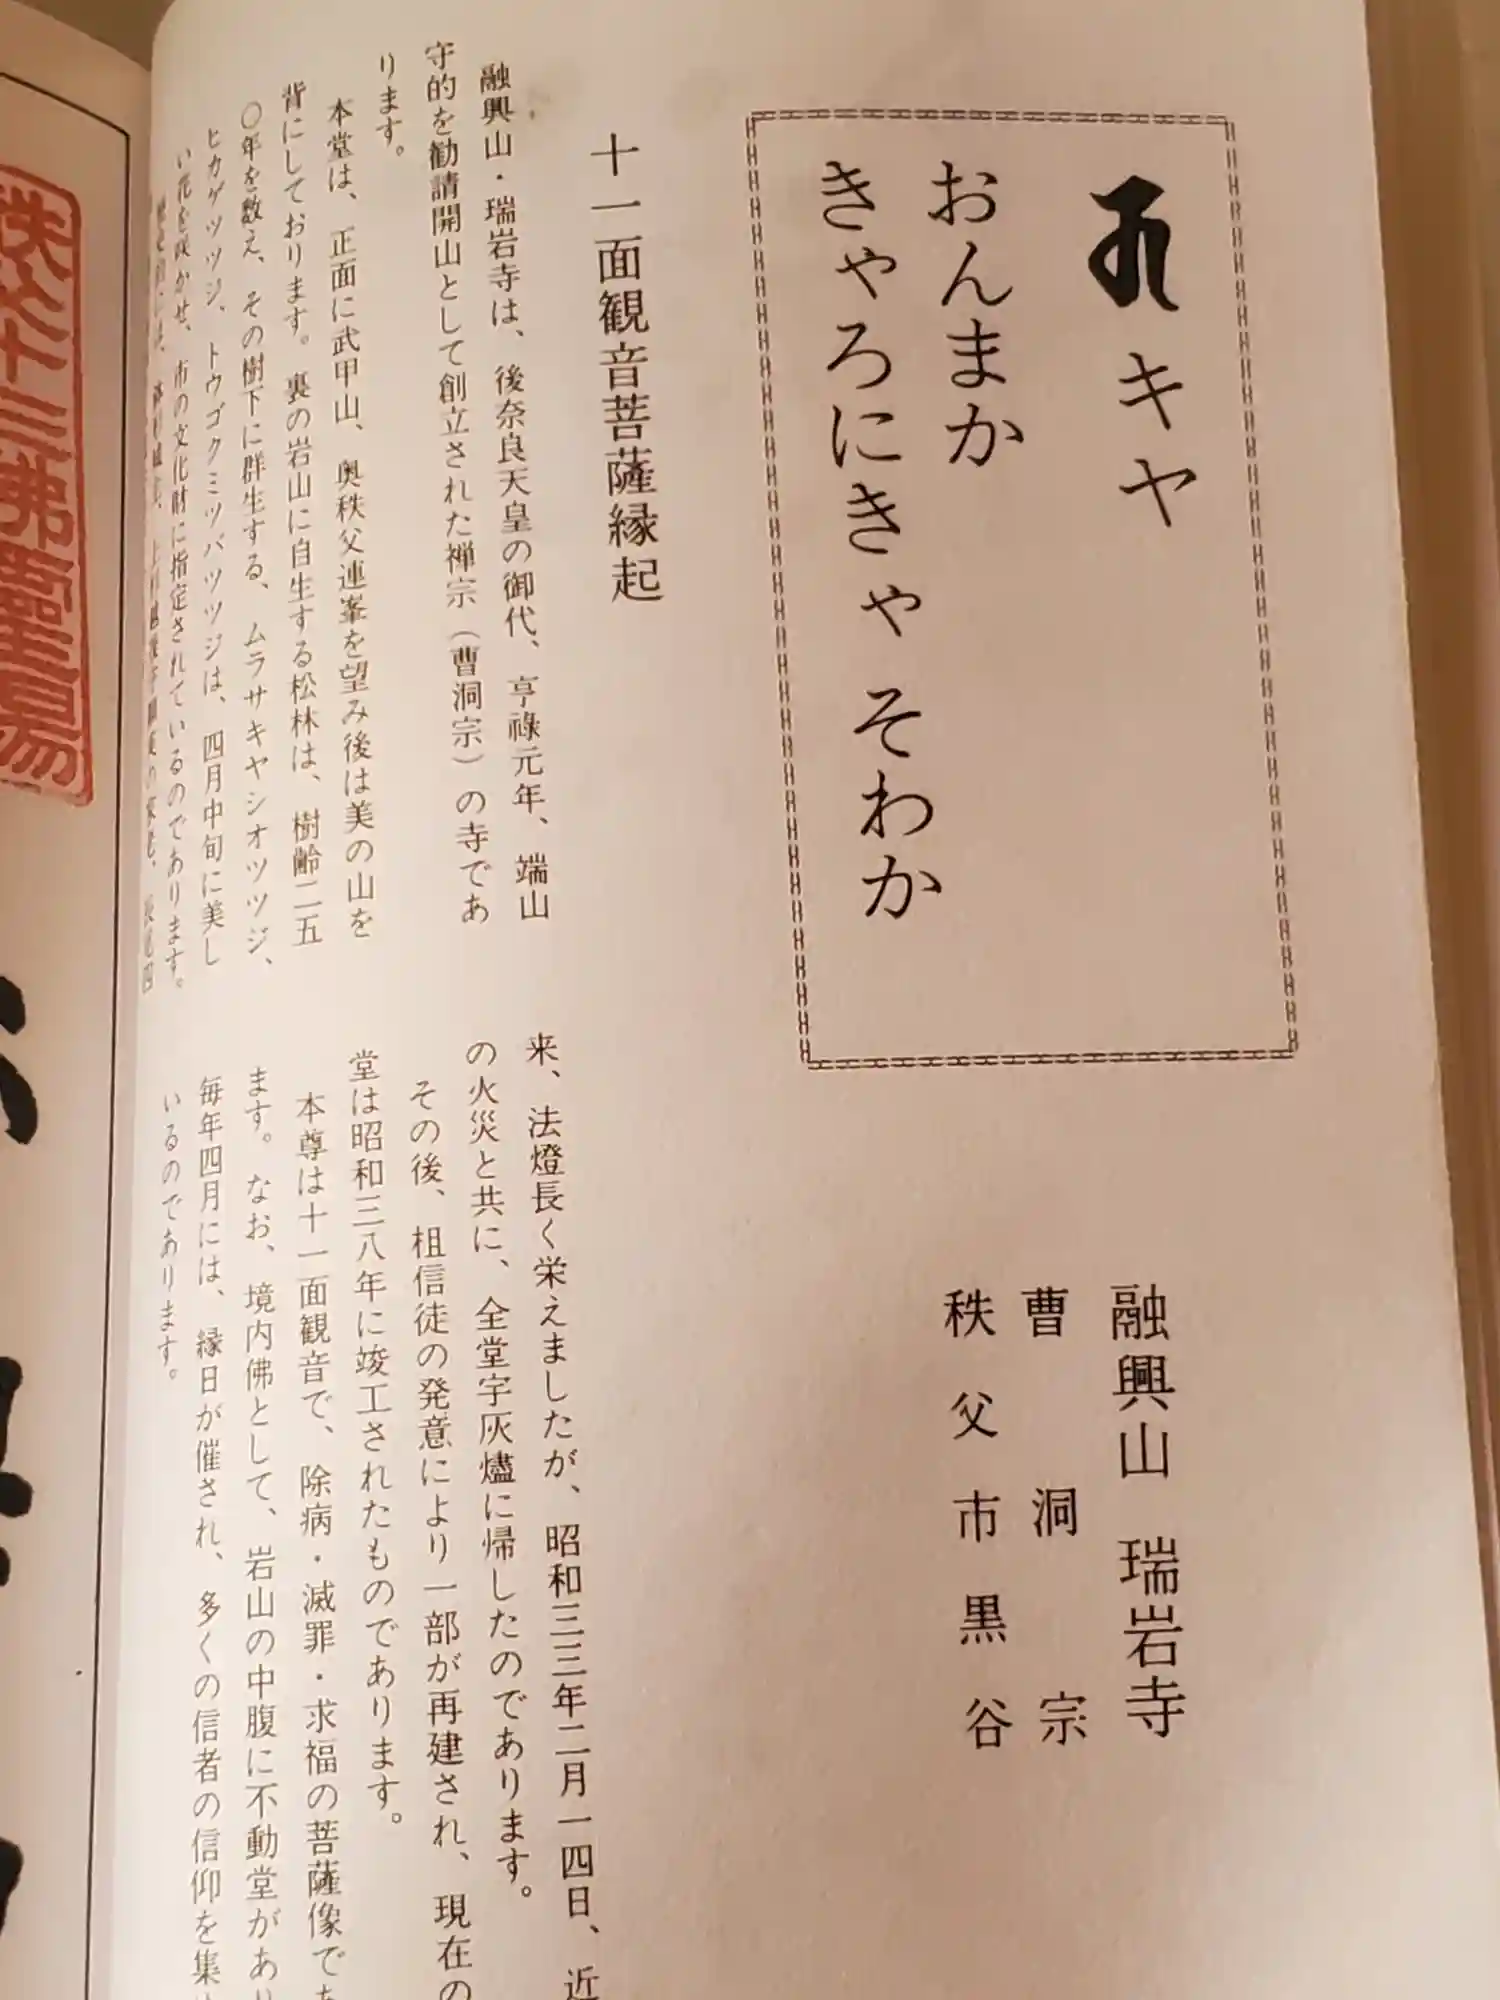 キヤ
おんまか
きゃろにきゃ そわか
融興山 瑞岩寺
曹洞宗
秩父市黒谷
十一面観音菩薩縁起
融興山・瑞岩寺は、後奈良天皇の御代、亨祿元年、端山
守的を勧請開山として創立された禅宗（曹洞宗）の寺であ
ります。
本堂は、正面に武甲山、奥秩父連峯を望み後は美の山を
背にしております。裏の岩山に自生する松林は、樹齢二五
〇年を数え、その樹下に群生する、ムラサキヤシオツツジ、
ヒカゲツツジ、トウゴクミツバツツジは、四月中旬に美し
い花を咲かせ、市の文化財に指定されているのであります。
来、法燈長く栄えましたが、昭和三三年二月一四日、近
の火災と共に、全堂宇灰燼に帰したのであります。
その後、檀信徒の発意により一部が再建され、現在の
堂は昭和三八年に竣工されたものであります。
本尊は十一面観音で、除病・滅罪・求福の菩薩像であ
ます。なお、境内佛として、岩山の中腹に不動堂があり
毎年四月には、縁日が催され、多くの信者の信仰を集
いるのであります。